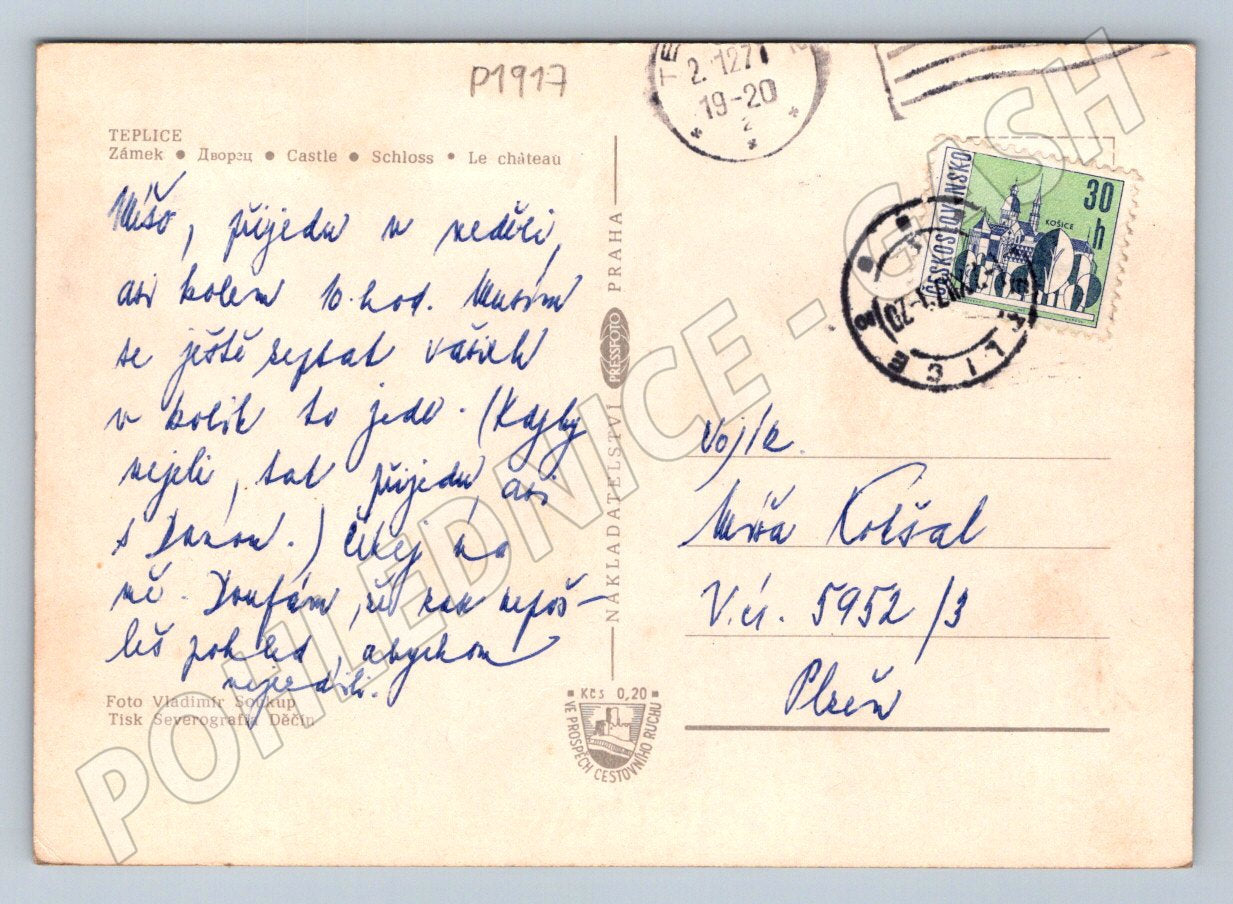 P1917
TEPLICE
Zámek • Дворец • Castle • Schloss • Le château
Míšo, přijedu v neděli,
asi kolem 10. hod. Musím
se ještě zeptat vašich
v kolik to jede. (Kdyby
nejeli, tak přijedu asi
s Danou.) Čekej na
mě. Doufám, že nám nepoš-
leš pohled, abychom
nejezdili.
Foto Vladimír Soukup
Tisk Severografia Děčín
NAKLADATELSTVÍ PRESSFOTO PRAHA
Kčs 0,20
VE PROSPĚCH CESTOVNÍHO RUCHU
TE
2. 12 71
19-20
2
ČESKOSLOVENSKO
30 h
KOŠICE
Vojín
Míša Kokšal
V.ú. 5952/3
Plzeň
POHLEDNICE - CASH